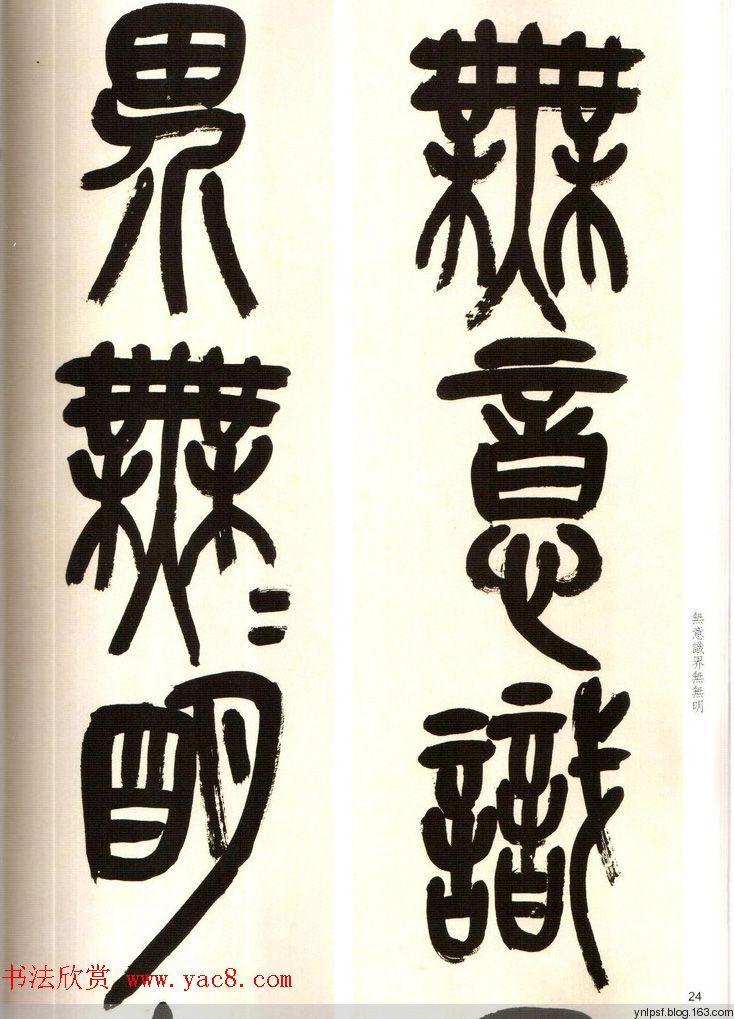 無意識
界無=明
無意識界無無明
书法欣赏 www.yac8.com
24
ynlpsf.blog.163.com